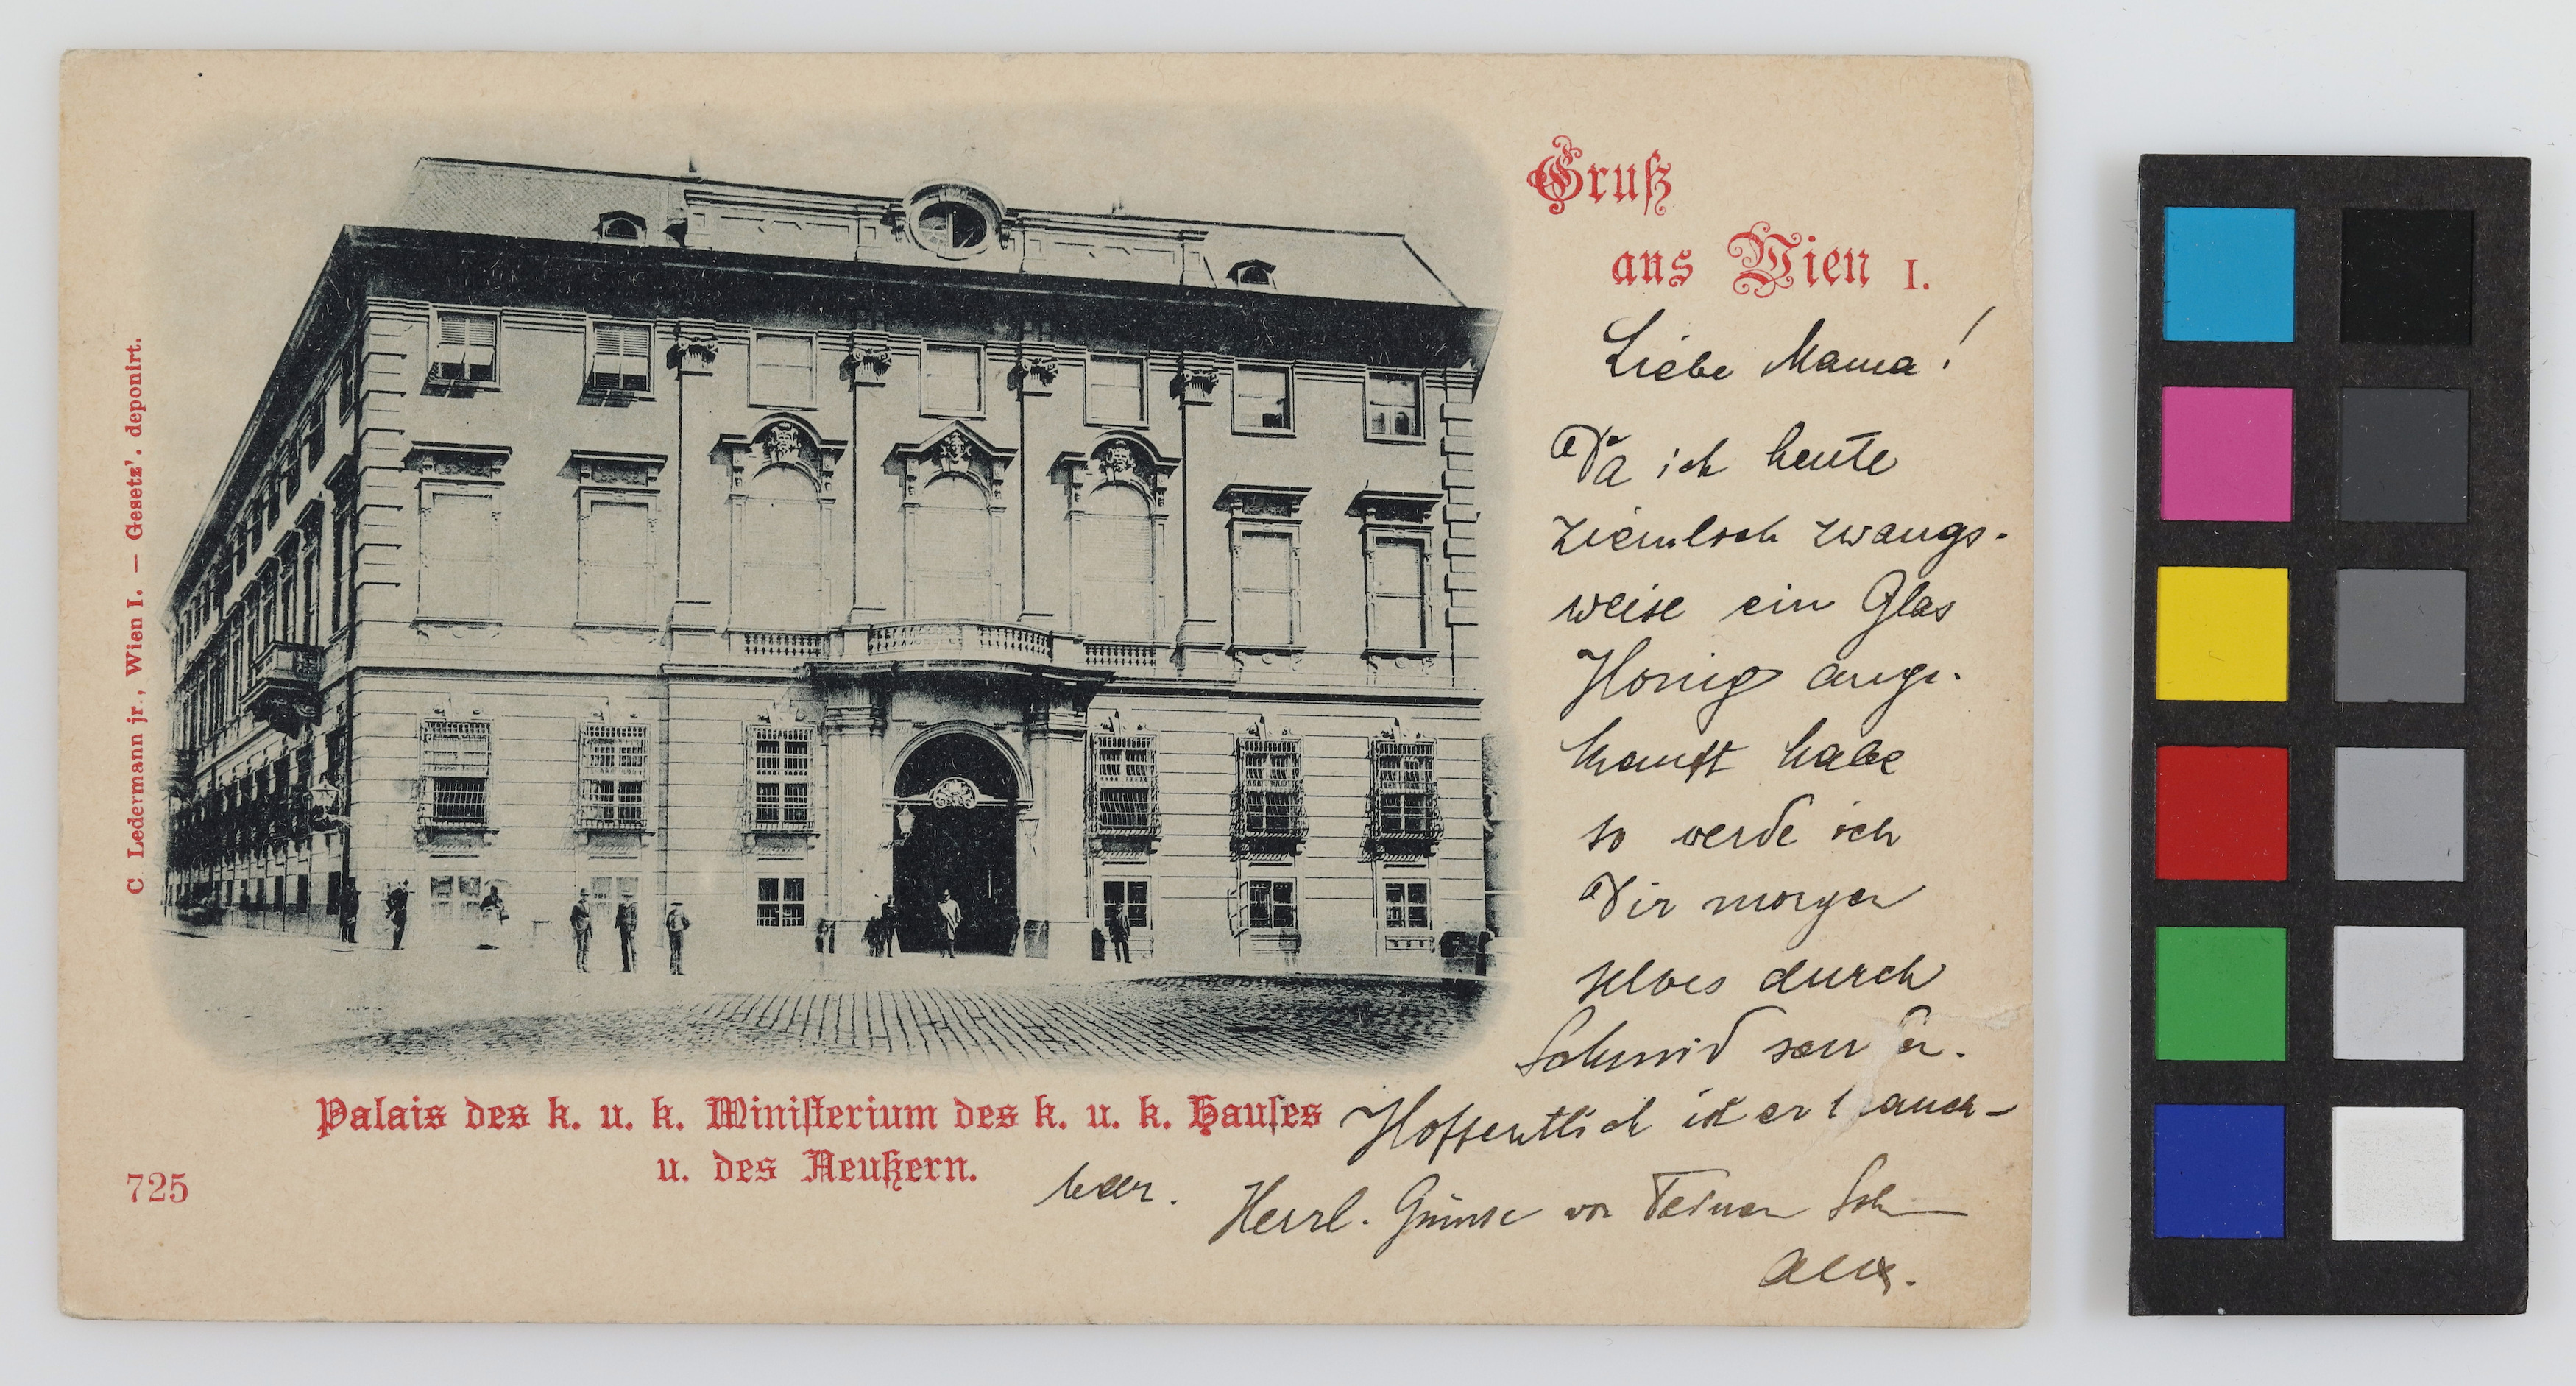 Gruß
aus Wien I.
Liebe Mama!
Da ich heute
ziemlich zwangs-
weise ein Glas
Honig ange-
kauft habe
so werde ich
Dir morgen
selbes durch
Schmid senden.
Hoffentlich ist er brauch-
bar. Herzl. Grüsse von Deinem Sohn
Alex.
Palais des k. u. k. Ministerium des k. u. k. Hauses
u. des Aeußern.
725
C Ledermann jr., Wien I. — Gesetz'. deponirt.